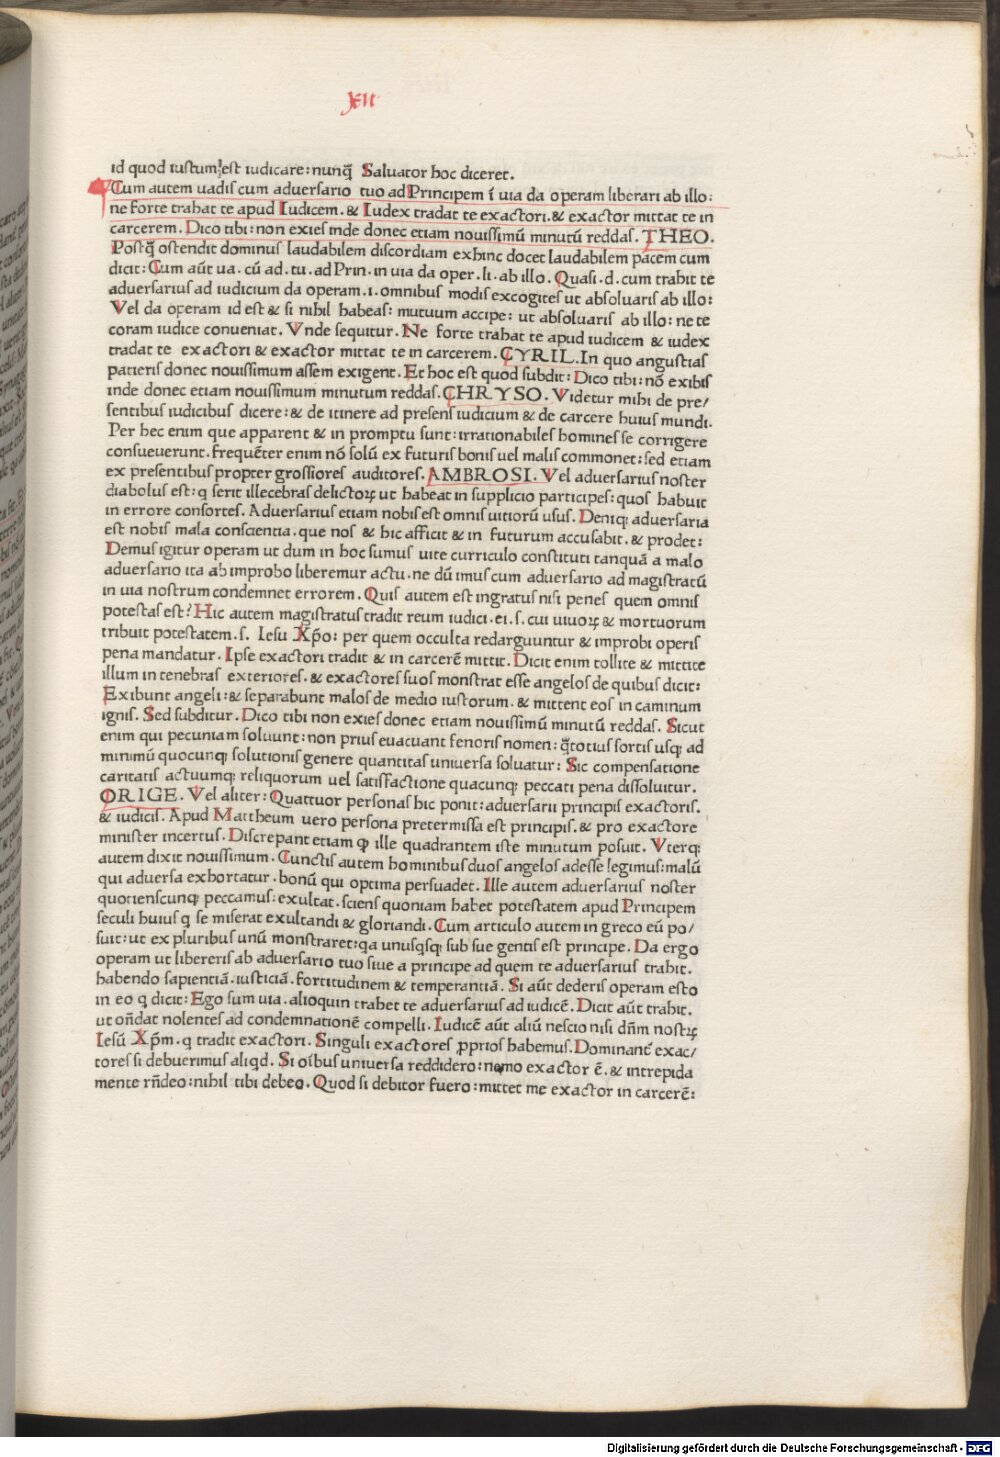 XII
id quod iustum est iudicare: nunq̃ Saluator hoc diceret.
Cum autem uadis cum aduersario tuo ad Principem ĩ uia da operam liberari ab illo:
ne forte trahat te apud Iudicem. & Iudex tradat te exactori. & exactor mittat te in
carcerem. Dico tibi: non exies inde donec etiam nouissimũ minutũ reddas. THEO.
Postq̃ ostendit dominus laudabilem discordiam exhinc docet laudabilem pacem cum
dicit: Cum aũt ua. cũ ad. tu. ad Prin. in uia da oper. li. ab illo. Quasi. d. cum trahit te
aduersarius ad iudicium da operam. i. omnibus modis excogites ut absoluaris ab illo:
Vel da operam id est & si nihil habeas: mutuum accipe: ut absoluaris ab illo: ne te
coram iudice conueniat. Vnde sequitur. Ne forte trahat te apud iudicem & iudex
tradat te exactori & exactor mittat te in carcerem. CYRIL. In quo angustias
patieris donec nouissimum assem exigent. Et hoc est quod subdit: Dico tibi: nõ exibis
inde donec etiam nouissimum minutum reddas. CHRYSO. Videtur mihi de pre/
sentibus iudicibus dicere: & de itinere ad presens iudicium & de carcere huius mundi.
Per hec enim que apparent & in promptu sunt: irrationabiles homines se corrigere
consueuerunt. Frequẽter enim nõ solũ ex futuris bonis uel malis commonet: sed etiam
ex presentibus propter grossiores auditores. AMBROSI. Vel aduersarius noster
diabolus est: q serit illecebras delictoꝝ ut habeat in supplicio participes: quos habuit
in errore consortes. Aduersarius etiam nobis est omnis uitiorũ usus. Deniq; aduersaria
est nobis mala conscientia. que nos & hic afficit & in futurum accusabit. & prodet:
Demus igitur operam ut dum in hoc sumus uite curriculo constituti tanquã a malo
aduersario ita ab improbo liberemur actu. ne dũ imus cum aduersario ad magistratũ
in uia nostrum condemnet errorem. Quis autem est ingratus nisi penes quem omnis
potestas est? Hic autem magistratus tradit reum iudici. ei. s. cui uiuoꝝ & mortuorum
tribuit potestatem. s. Iesu Xp̃o: per quem occulta redarguuntur & improbi operis
pena mandatur. Ipse exactori tradit & in carcerẽ mittit. Dicit enim tollite & mittite
illum in tenebras exteriores. & exactores suos monstrat esse angelos de quibus dicit:
Exibunt angeli: & separabunt malos de medio iustorum. & mittent eos in caminum
ignis. Sed subditur. Dico tibi non exies donec etiam nouissimũ minutũ reddas. Sicut
enim qui pecuniam soluunt: non prius euacuant fenoris nomen: q̃ totius sortis usq; ad
minimũ quocunq; solutionis genere quantitas uniuersa soluatur: Sic compensatione
caritatis actuumq; reliquorum uel satisfactione quacunq; peccati pena dissoluitur.
ORIGE. Vel aliter: Quattuor personas hic ponit: aduersarii principis exactoris.
& iudicis. Apud Mattheum uero persona pretermissa est principis. & pro exactore
minister incertus. Discrepant etiam ꝙ ille quadrantem iste minutum posuit. Vterq;
autem dixit nouissimum. Cunctis autem hominibus duos angelos adesse legimus: malũ
qui aduersa exhortatur. bonũ qui optima persuadet. Ille autem aduersarius noster
quotienscunq; peccamus: exultat. sciens quoniam habet potestatem apud Principem
seculi huius q se miserat exultandi & gloriandi. Cum articulo autem in greco eũ po/
suit: ut ex pluribus unũ monstraret: qa unusqsq; sub sue gentis est principe. Da ergo
operam ut libereris ab aduersario tuo siue a principe ad quem te aduersarius trahit.
habendo sapientiã. iusticiã. fortitudinem & temperantiã. Si aũt dederis operam esto
in eo q dicit: Ego sum uia. alioquin trahet te aduersarius ad iudicẽ. Dicit aũt trahit.
ut oñdat nolentes ad condemnationẽ compelli. Iudicẽ aũt aliũ nescio nisi dñm nostꝝ
Iesũ Xp̃m. q tradit exactori. Singuli exactores ꝓprios habemus. Dominant̃ exac/
tores si debuerimus aliqd. Si oĩbus uniuersa reddidero: nemo exactor ẽ. & intrepida
mente rñdeo: nihil tibi debeo. Quod si debitor fuero: mittet me exactor in carcerẽ:
Digitalisierung gefördert durch die Deutsche Forschungsgemeinschaft - DFG